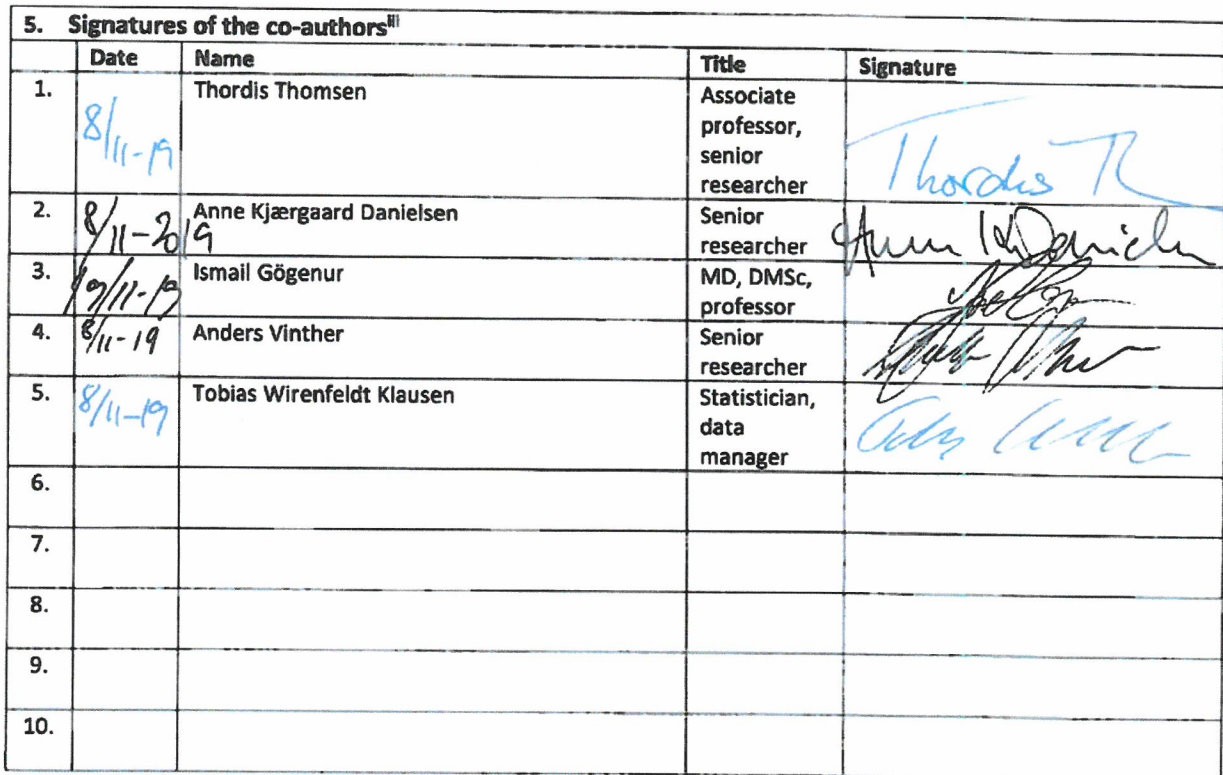 5. Signatures of the co-authors iii
Date Name Title Signature
1. 8/11-19 Thordis Thomsen Associate professor, senior researcher Thordis T
2. 8/11-2019 Anne Kjærgaard Danielsen Senior researcher
3. 19/11-19 Ismail Gögenur MD, DMSc, professor
4. 8/11-19 Anders Vinther Senior researcher
5. 8/11-19 Tobias Wirenfeldt Klausen Statistician, data manager
6.
7.
8.
9.
10.